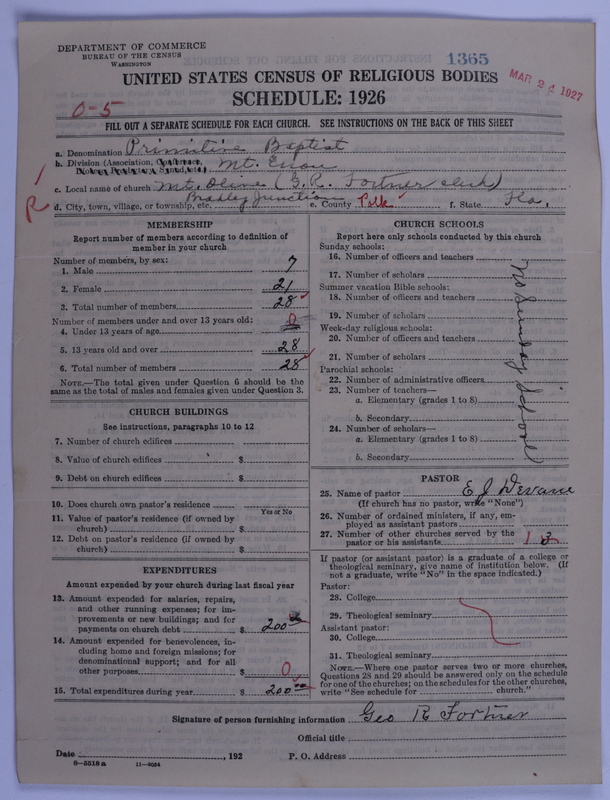 DEPARTMENT OF COMMERCE
BUREAU OF THE CENSUS
WASHINGTON
1365
MAR 2 1927
UNITED STATES CENSUS OF RELIGIOUS BODIES
SCHEDULE: 1926
0-5
FILL OUT A SEPARATE SCHEDULE FOR EACH CHURCH. SEE INSTRUCTIONS ON THE BACK OF THIS SHEET
a. Denomination Primitive Baptist
b. Division (Association, Conference, Mt. Enon
Diocese, Presbytery, Synod, etc.)
c. Local name of church Mt. Olive (G. R. Fortner clerk)
R
d. City, town, village, or township, etc. Bradley Junction e. County Polk f. State Fla.
MEMBERSHIP
Report number of members according to definition of
member in your church
Number of members, by sex:
1. Male 7
2. Female 21
3. Total number of members 28
Number of members under and over 13 years old:
4. Under 13 years of age 0
5. 13 years old and over 28
6. Total number of members 28
NOTE.—The total given under Question 6 should be the
same as the total of males and females given under Question 3.
CHURCH BUILDINGS
See instructions, paragraphs 10 to 12
7. Number of church edifices
8. Value of church edifices $
9. Debt on church edifices $
10. Does church own pastor's residence
Yes or No
11. Value of pastor's residence (if owned by
church) $
12. Debt on pastor's residence (if owned by
church) $
EXPENDITURES
Amount expended by your church during last fiscal year
13. Amount expended for salaries, repairs,
and other running expenses; for im-
provements or new buildings; and for
payments on church debt $ 200 00
14. Amount expended for benevolences, in-
cluding home and foreign missions; for
denominational support; and for all
other purposes $ 0
15. Total expenditures during year $ 200 00
CHURCH SCHOOLS
Report here only schools conducted by this church
Sunday schools:
16. Number of officers and teachers
17. Number of scholars
Summer vacation Bible schools:
18. Number of officers and teachers
19. Number of scholars
Week-day religious schools:
20. Number of officers and teachers
21. Number of scholars
Parochial schools:
22. Number of administrative officers
23. Number of teachers—
a. Elementary (grades 1 to 8)
b. Secondary
24. Number of scholars—
a. Elementary (grades 1 to 8)
b. Secondary
No Sunday School
PASTOR
25. Name of pastor E J Devane
(If church has no pastor, write "None")
26. Number of ordained ministers, if any, em-
ployed as assistant pastors
27. Number of other churches served by the
pastor or his assistants 3
If pastor (or assistant pastor) is a graduate of a college or
theological seminary, give name of institution below. (If
not a graduate, write "No" in the space indicated.)
Pastor:
28. College
29. Theological seminary
Assistant pastor:
30. College
31. Theological seminary
NOTE.—Where one pastor serves two or more churches,
Questions 28 and 29 should be answered only on the schedule
for one of the churches; on the schedules for the other churches,
write "See schedule for church."
Signature of person furnishing information Geo R Fortner
Official title
Date , 192 P. O. Address
8-5518 a 11-9024